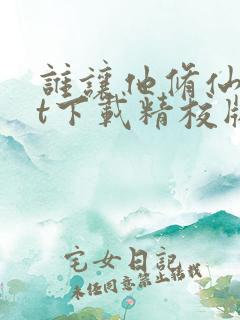 誰讓他脩仙
t下載精校版
宅女日記
未经同意禁止转载